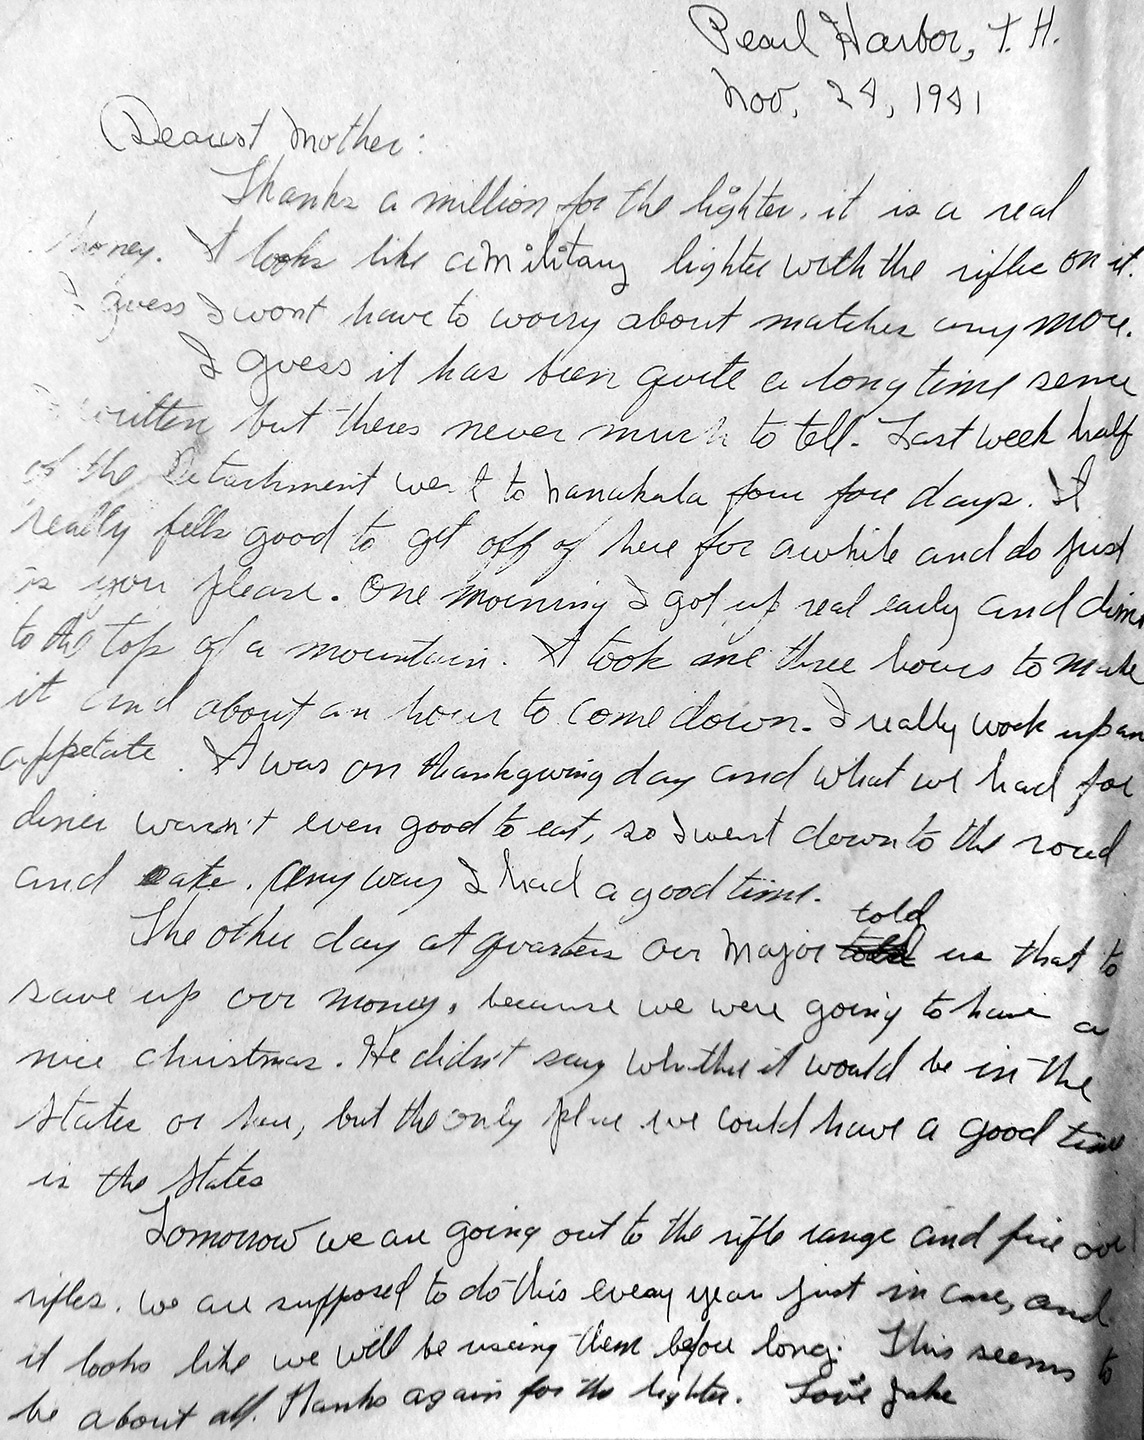 Pearl Harbor, T. H.
Nov. 24, 1941
Dearest Mother:
Thanks a million for the lighter, it is a real
honey. It looks like a military lighter with the rifle on it.
I guess I wont have to worry about matches any more.
I guess it has been quite a long time sence
written but theres never much to tell. Last week half
of the Detachment went to Nanakula four days. It
really fells good to get off of here for awhile and do just
as you please. One morning I got up real early and clim
to the top of a mountain. It took me three hours to make
it and about an hour to come down. I really work up an
appetate. It was on thanksgiving day and what we had for
diner wasn't even good to eat, so I went down to the road
and ate. Any way I had a good time.
The other day at quarters our Major told us that to
save up our money, because we were going to have a
nice christmas. He didn't say whether it would be in the
States or here, but the only place we could have a good time
is the States
Tomorrow we are going out to the rifle range and fire our
rifles. We are supposed to do this every year just in case, and
it looks like we will be useing them before long. This seems to
be about all. Thanks again for the lighter. Love Jake